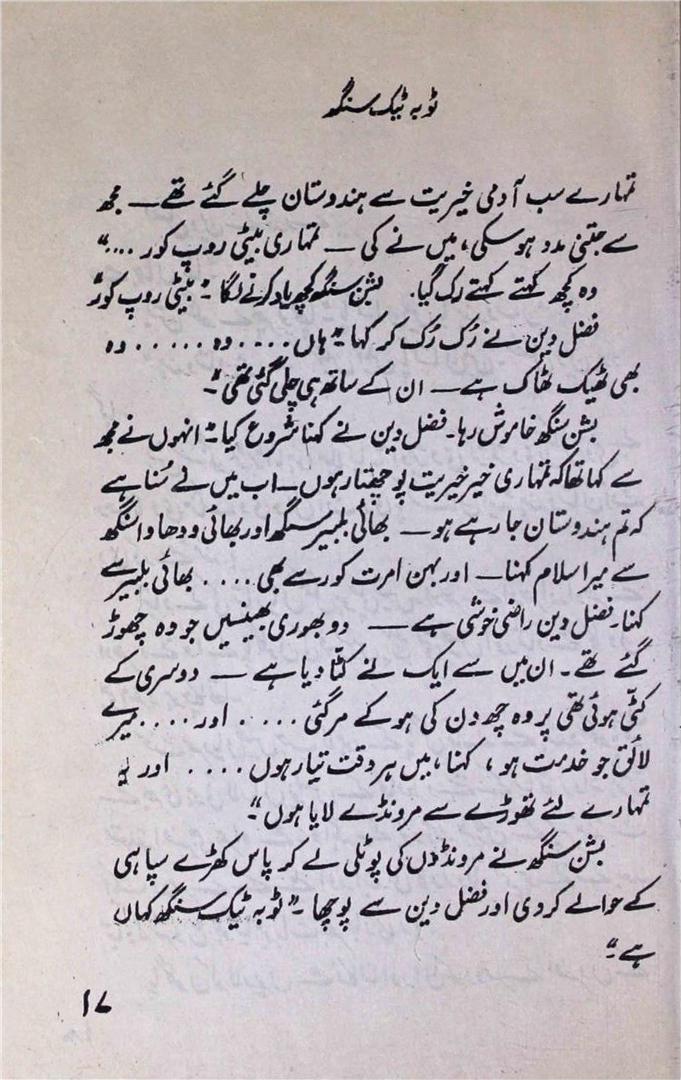 ٹوبہ ٹیک سنگھ
تمہارے سب آدمی خیریت سے ہندوستان چلے گئے تھے — مجھ
سے جتنی مدد ہوسکی، میں نے کی — تمہاری بیٹی روپ کور ...."
وہ کچھ کہتے کہتے رک گیا. بشن سنگھ کچھ یاد کرنے لگا ـ "بیٹی روپ کور"
فضل دین نے رُک رُک کر کہا ـ "ہاں .... وہ ..... وہ
بھی ٹھیک ٹھاک ہے — ان کے ساتھ ہی چلی گئی تھی"ـ
بشن سنگھ خاموش رہا۔ فضل دین نے کہنا شروع کیا ـ "انہوں نے مجھ
سے کہا تھا کہ تمہاری خیر خیریت پوچھتا رہوں — اب میں نے سُنا ہے
کہ تم ہندوستان جا رہے ہو — بھائی بلبیر سنگھ اور بھائی ودھاوا سنگھ
سے میرا سلام کہنا — اور بہن امرت کور سے بھی .... بھائی بلبیر سے
کہنا۔ فضل دین راضی خوشی ہے — دو بھوری بھینسیں جو وہ چھوڑ
گئے تھے۔ ان میں سے ایک نے کٹّا دیا ہے — دوسری کے
کٹّی ہوئی تھی پر وہ چھ دن کی ہو کے مرگئی ..... اور .... میرے
لائق جو خدمت ہو، کہنا، میں ہر وقت تیار ہوں .... اور یہ
تمہارے لئے تھوڑے سے مرونڈے لایا ہوں"ـ
بشن سنگھ نے مرونڈوں کی پوٹلی لے کر پاس کھڑے سپاہی
کے حوالے کردی اور فضل دین سے پوچھا ـ "ٹوبہ ٹیک سنگھ کہاں
ہے"ـ
۱۷